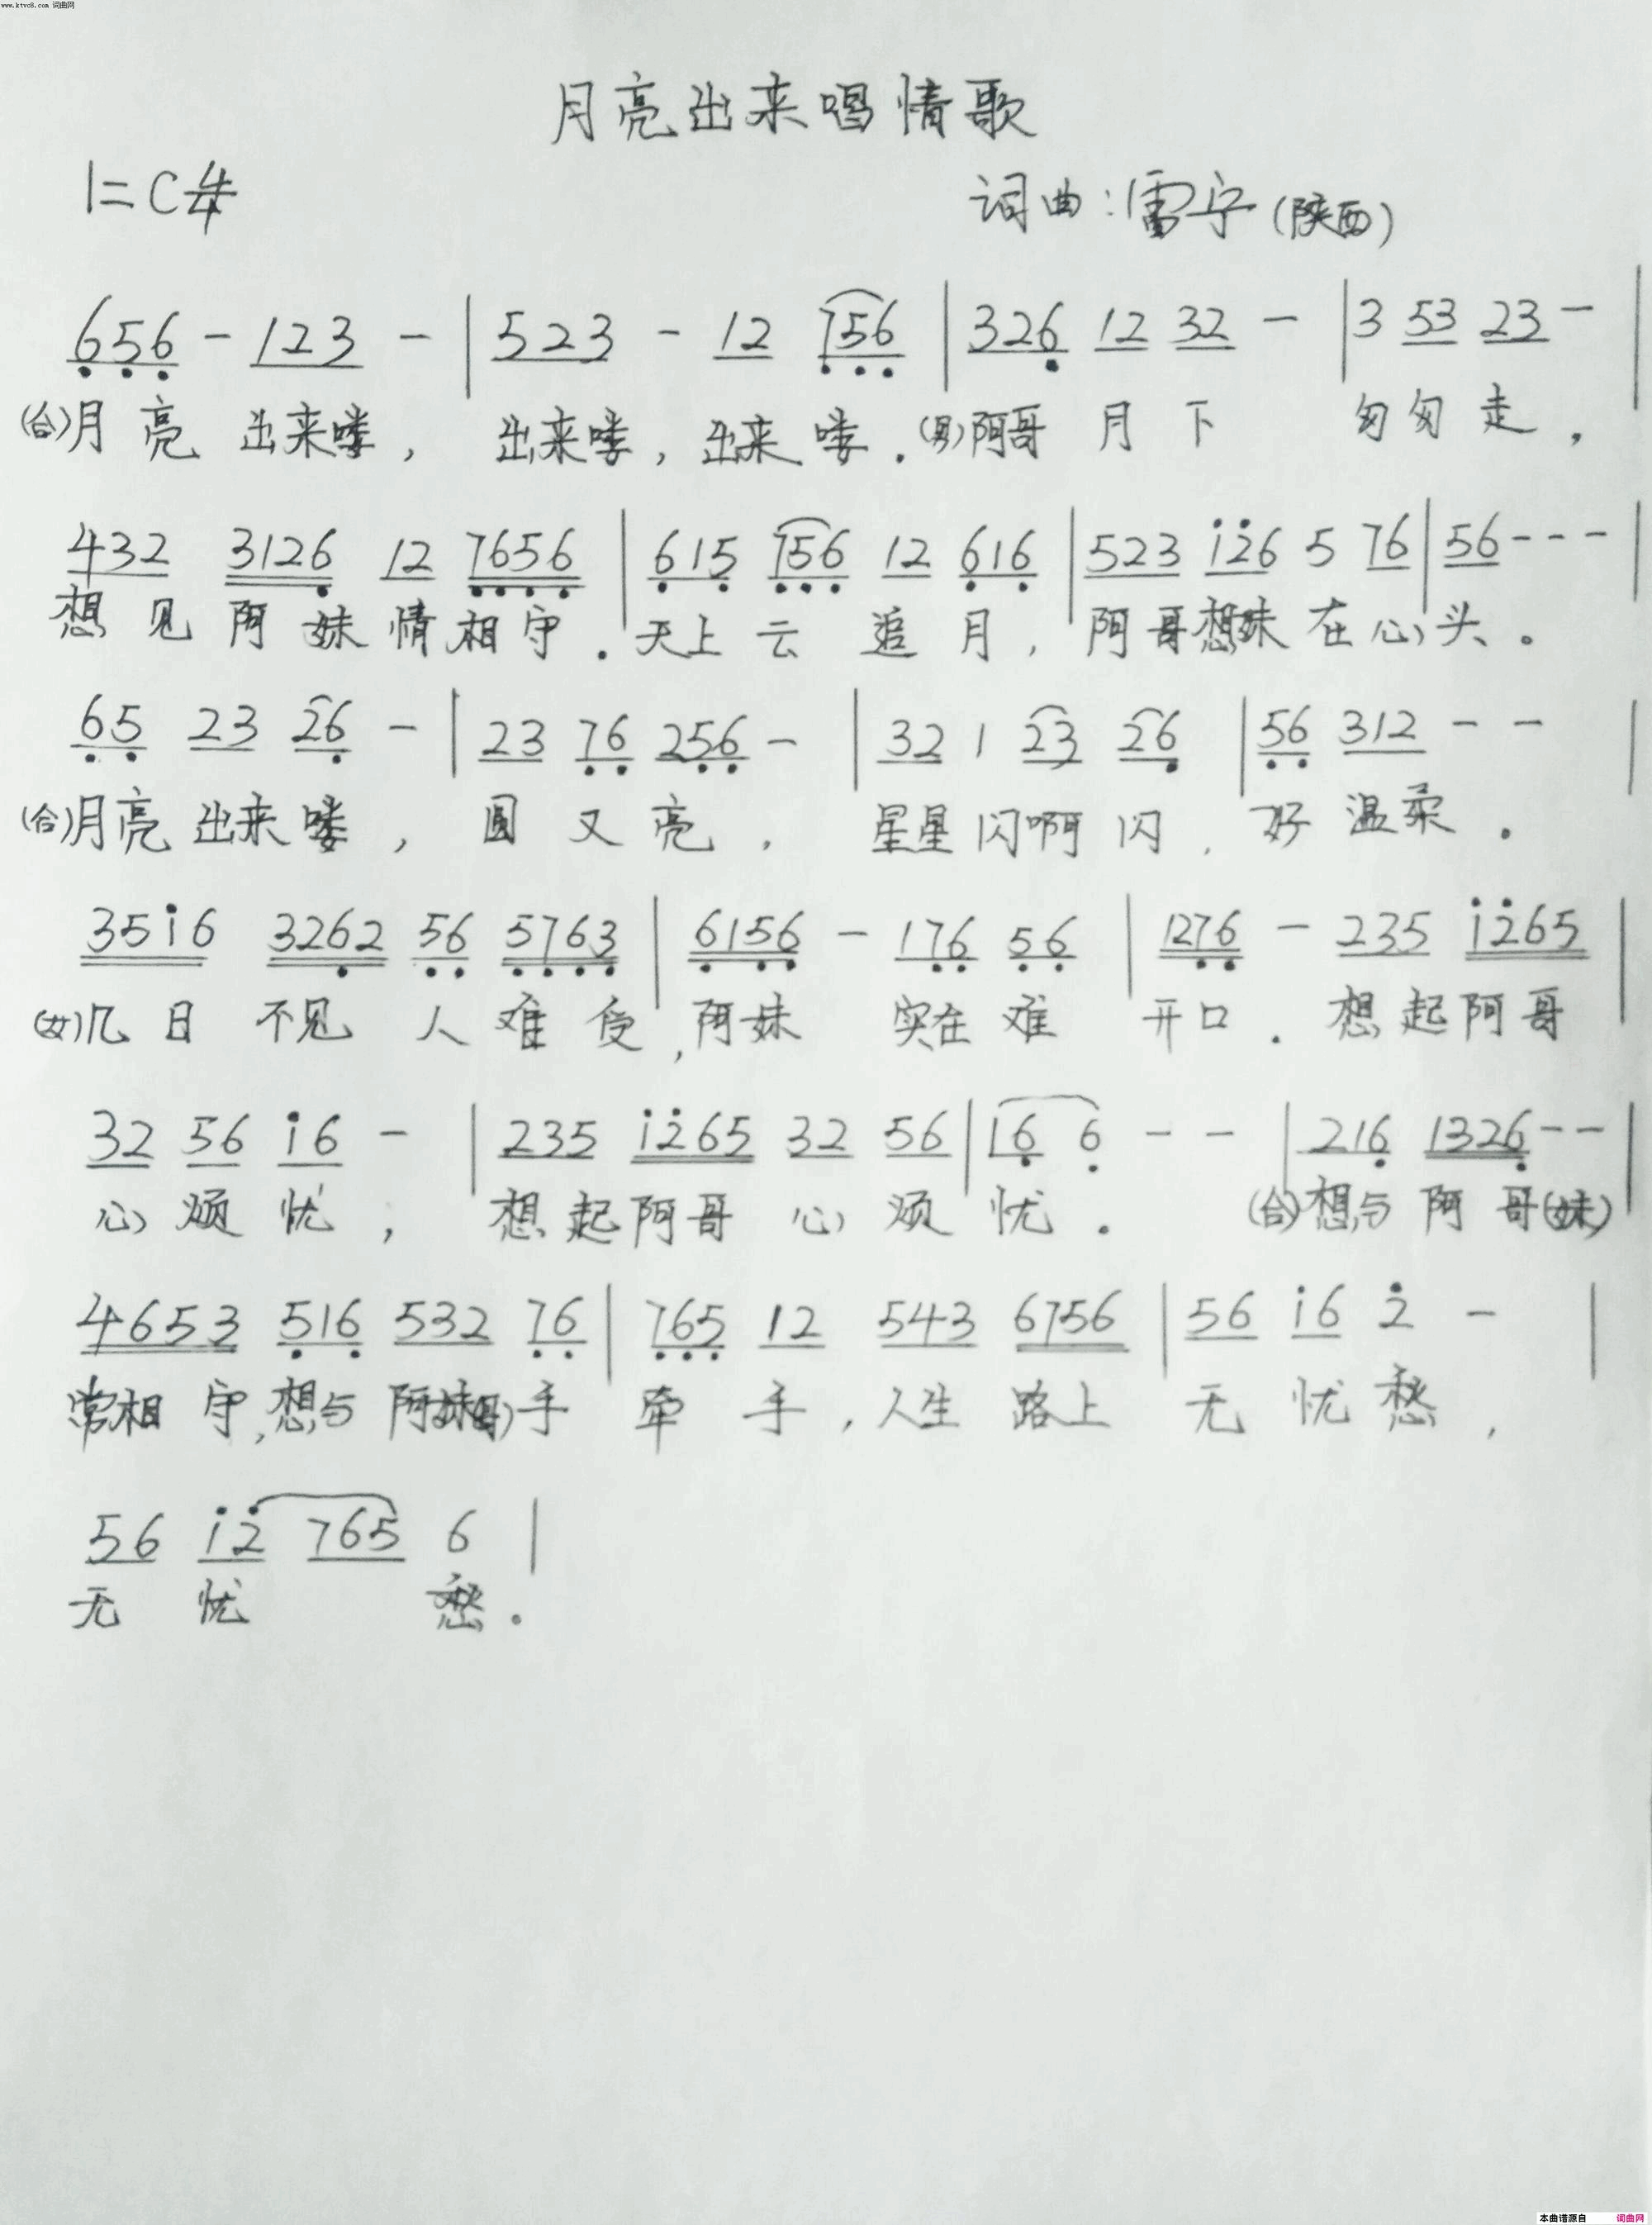 www.ktvc8.com 词曲网
月亮出来唱情歌
1=C 4/4
词曲:雷宇(陕西)
656 - 123 - | 523 - 12 756 | 326 12 32 - | 3 53 23 - |
(合)月亮出来喽, 出来喽,出来喽.(男)阿哥月下 匆匆走,
432 3126 12 7656 | 615 756 12 616 | 523 i̇2̇6 5 76 | 56 - - - |
想见阿妹情相守.天上云追月,阿哥想妹在心头。
65 23 26 - | 23 76 256 - | 32 1 23 26 | 56 312 - - |
(合)月亮出来喽, 圆又亮, 星星闪啊闪, 好温柔.
35i̇6 3262 56 5763 | 6156 - 176 56 | 1276 - 235 i̇2̇65 |
(女)几日不见人难受,阿妹 实在难 开口. 想起阿哥
32 56 i̇6 - | 235 i̇2̇65 32 56 | 16 6 - - | 216 1326 - - |
心烦忧, 想起阿哥心烦忧. (合)想与阿哥(妹)
4653 516 532 76 | 765 12 543 6756 | 56 i̇6 2̇ - |
常相守,想与阿妹(哥)手牵手,人生路上无忧愁,
56 i̇2̇ 765 6 |
无忧 愁.
本曲谱源自 词曲网